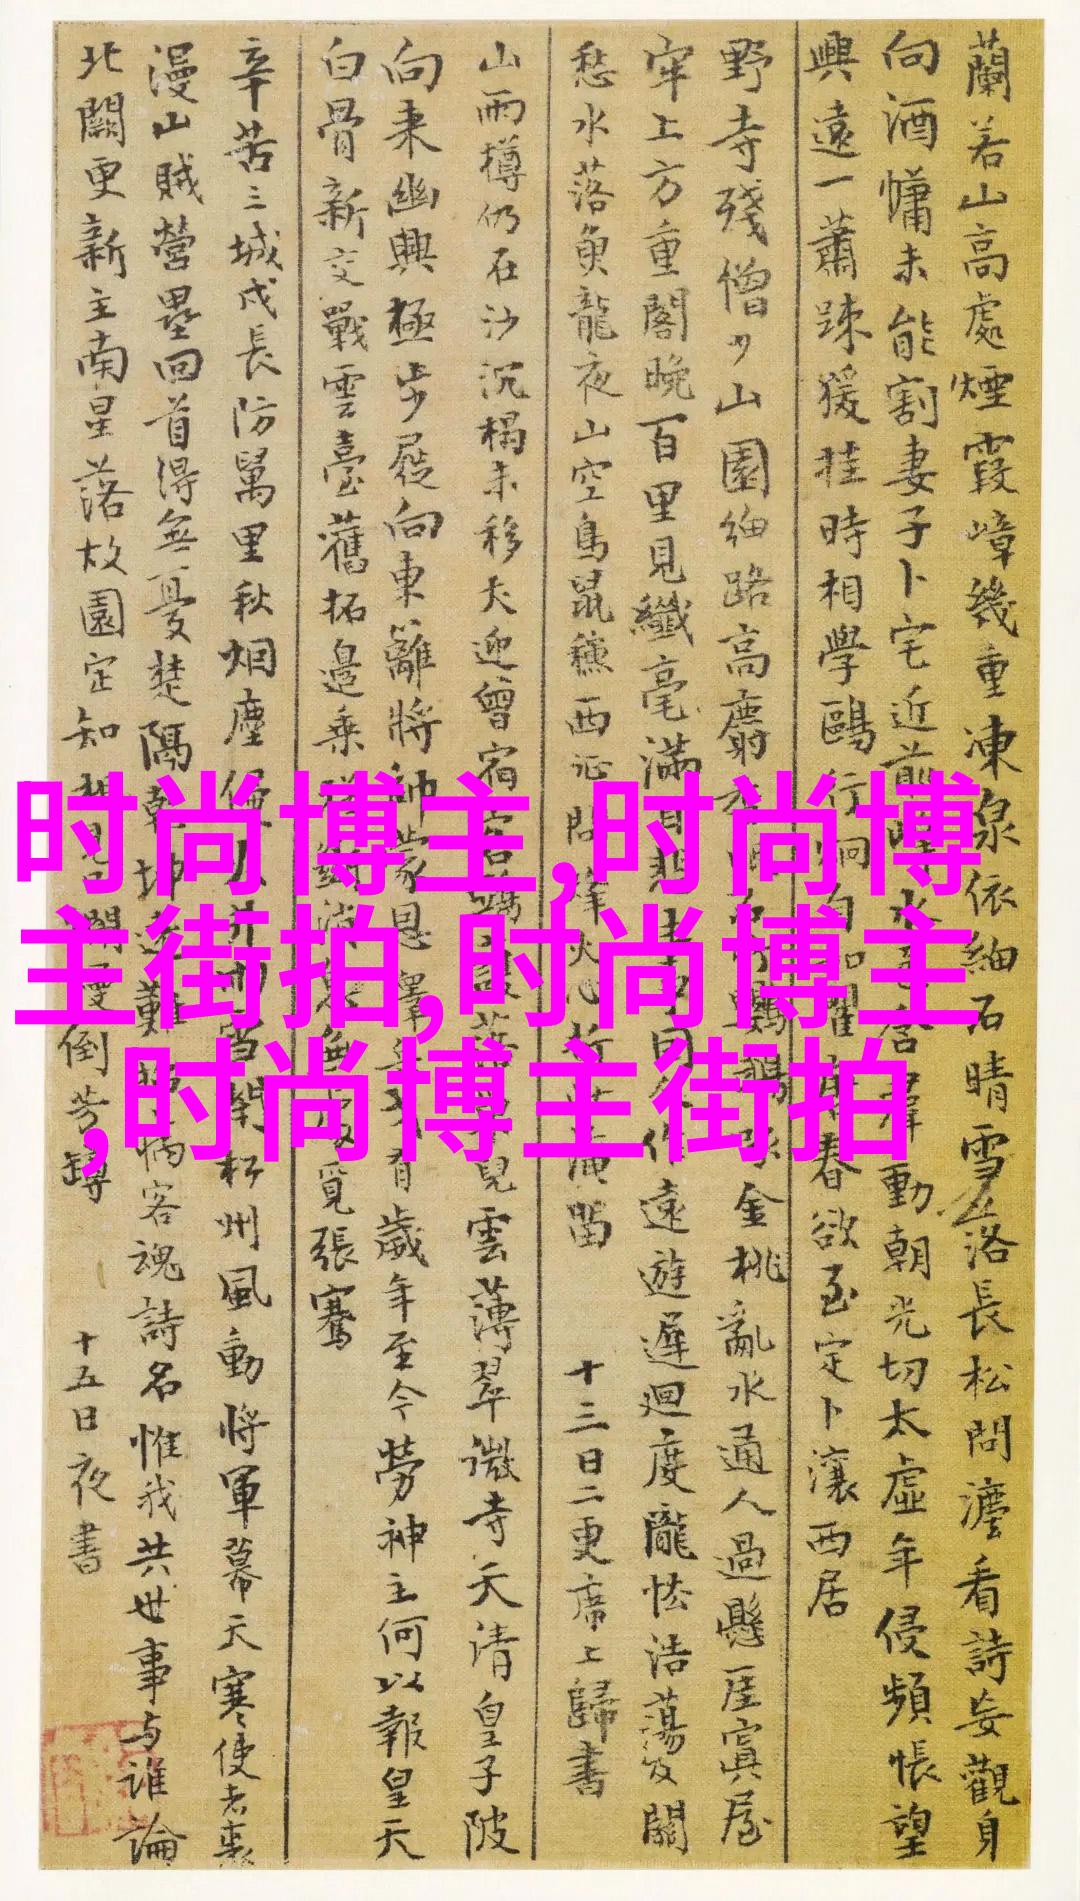 蘭若山高處煙霞嶂幾重凍泉依細石晴雪落長松問法看詩妄觀身
向酒慵未能割妻子卜宅近前 水 含群動朝光切太虛年侵頻悵望
興遠一蕭疎猨挂時相學鷗行炯自 春欲至定卜瀼西居
野寺殘僧少山園細路高麝 金桃亂水通人過懸崖寘屋
牢上方重閣晚百里見纖毫滿目悲生事 因人作遠遊遲迴度隴怯浩蕩及關
愁水落魚龍夜山空鳥鼠穐西征問烽火心折此淹留 十三日二更席上歸書
山雨樽仍在沙沉榻未移犬迎曾宿客 雲薄翠微寺天清皇子陂
向來幽興極步屧向東籬將帥蒙恩澤 有歲年至今勞神主何以報皇天
白骨新交戰雲臺舊拓邊乘 消息無 覓張騫
辛苦三城戍長防萬里秋烟塵侵火井 松州風動將軍幕天寒使者裘
漫山賊營壘回首得無憂楚隔乾坤遠難招病客魂詩名惟我共世事与誰論
北闕更新主南星落故園定知相見日爛熳倒芳罇 十五日夜書
时尚博主,时尚博
主街拍,时尚博主
,时尚博主街拍